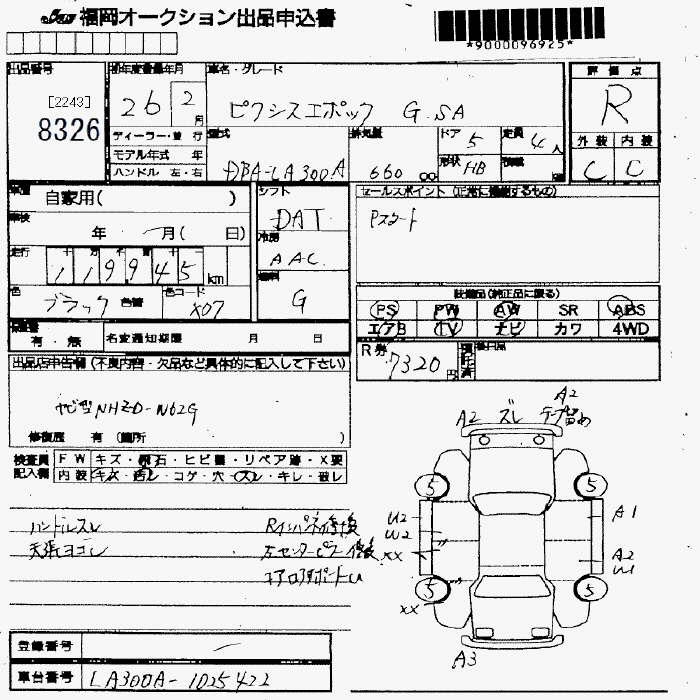 福岡オークション出品申込書
*9000096925*
出品番号
[2243]
8326
初年度登録年月
26 2月
車名・グレード
ピクシスエポック G.SA
評価点
R
ディーラー・並行
モデル年式 年
ハンドル 左・右
型式
DBA-LA300A
排気量
660 cc
ドア 5
形状 HB
定員 4人
積載 kg
外装 内装
C C
車歴 自家用( )
車検 年 月( 日)
走行 119945 km
色 ブラック 色替
色コード X07
シフト
DAT
冷房
AAC
燃料
G
セールスポイント (正常に機能するもの)
Pスタート
装備品(純正品に限る)
PS PW AW SR ABS
エアB TV ナビ カワ 4WD
保証書
有・無
名変通知期限 月 日
R券
7320 円
後日品
出品店申告欄(不良内容・欠品など具体的に記入して下さい)
ナビ型NHZD-W62G
修復歴 有(箇所 )
検査員記入欄
FW キズ・飛石・ヒビ有・リペア跡・X要
内装 キズ・汚レ・コゲ・穴・スレ・キレ・破レ
ハンドルスレ
天張ヨゴレ
Rインパネ修後
左センターピラー修後
コアロアサポートU
A2 ズレ
A2
テープ留め
5 5
U2
W2
XX
A1
A2
W1
5 5
XX
A3
登録番号
車台番号 LA300A-1025422